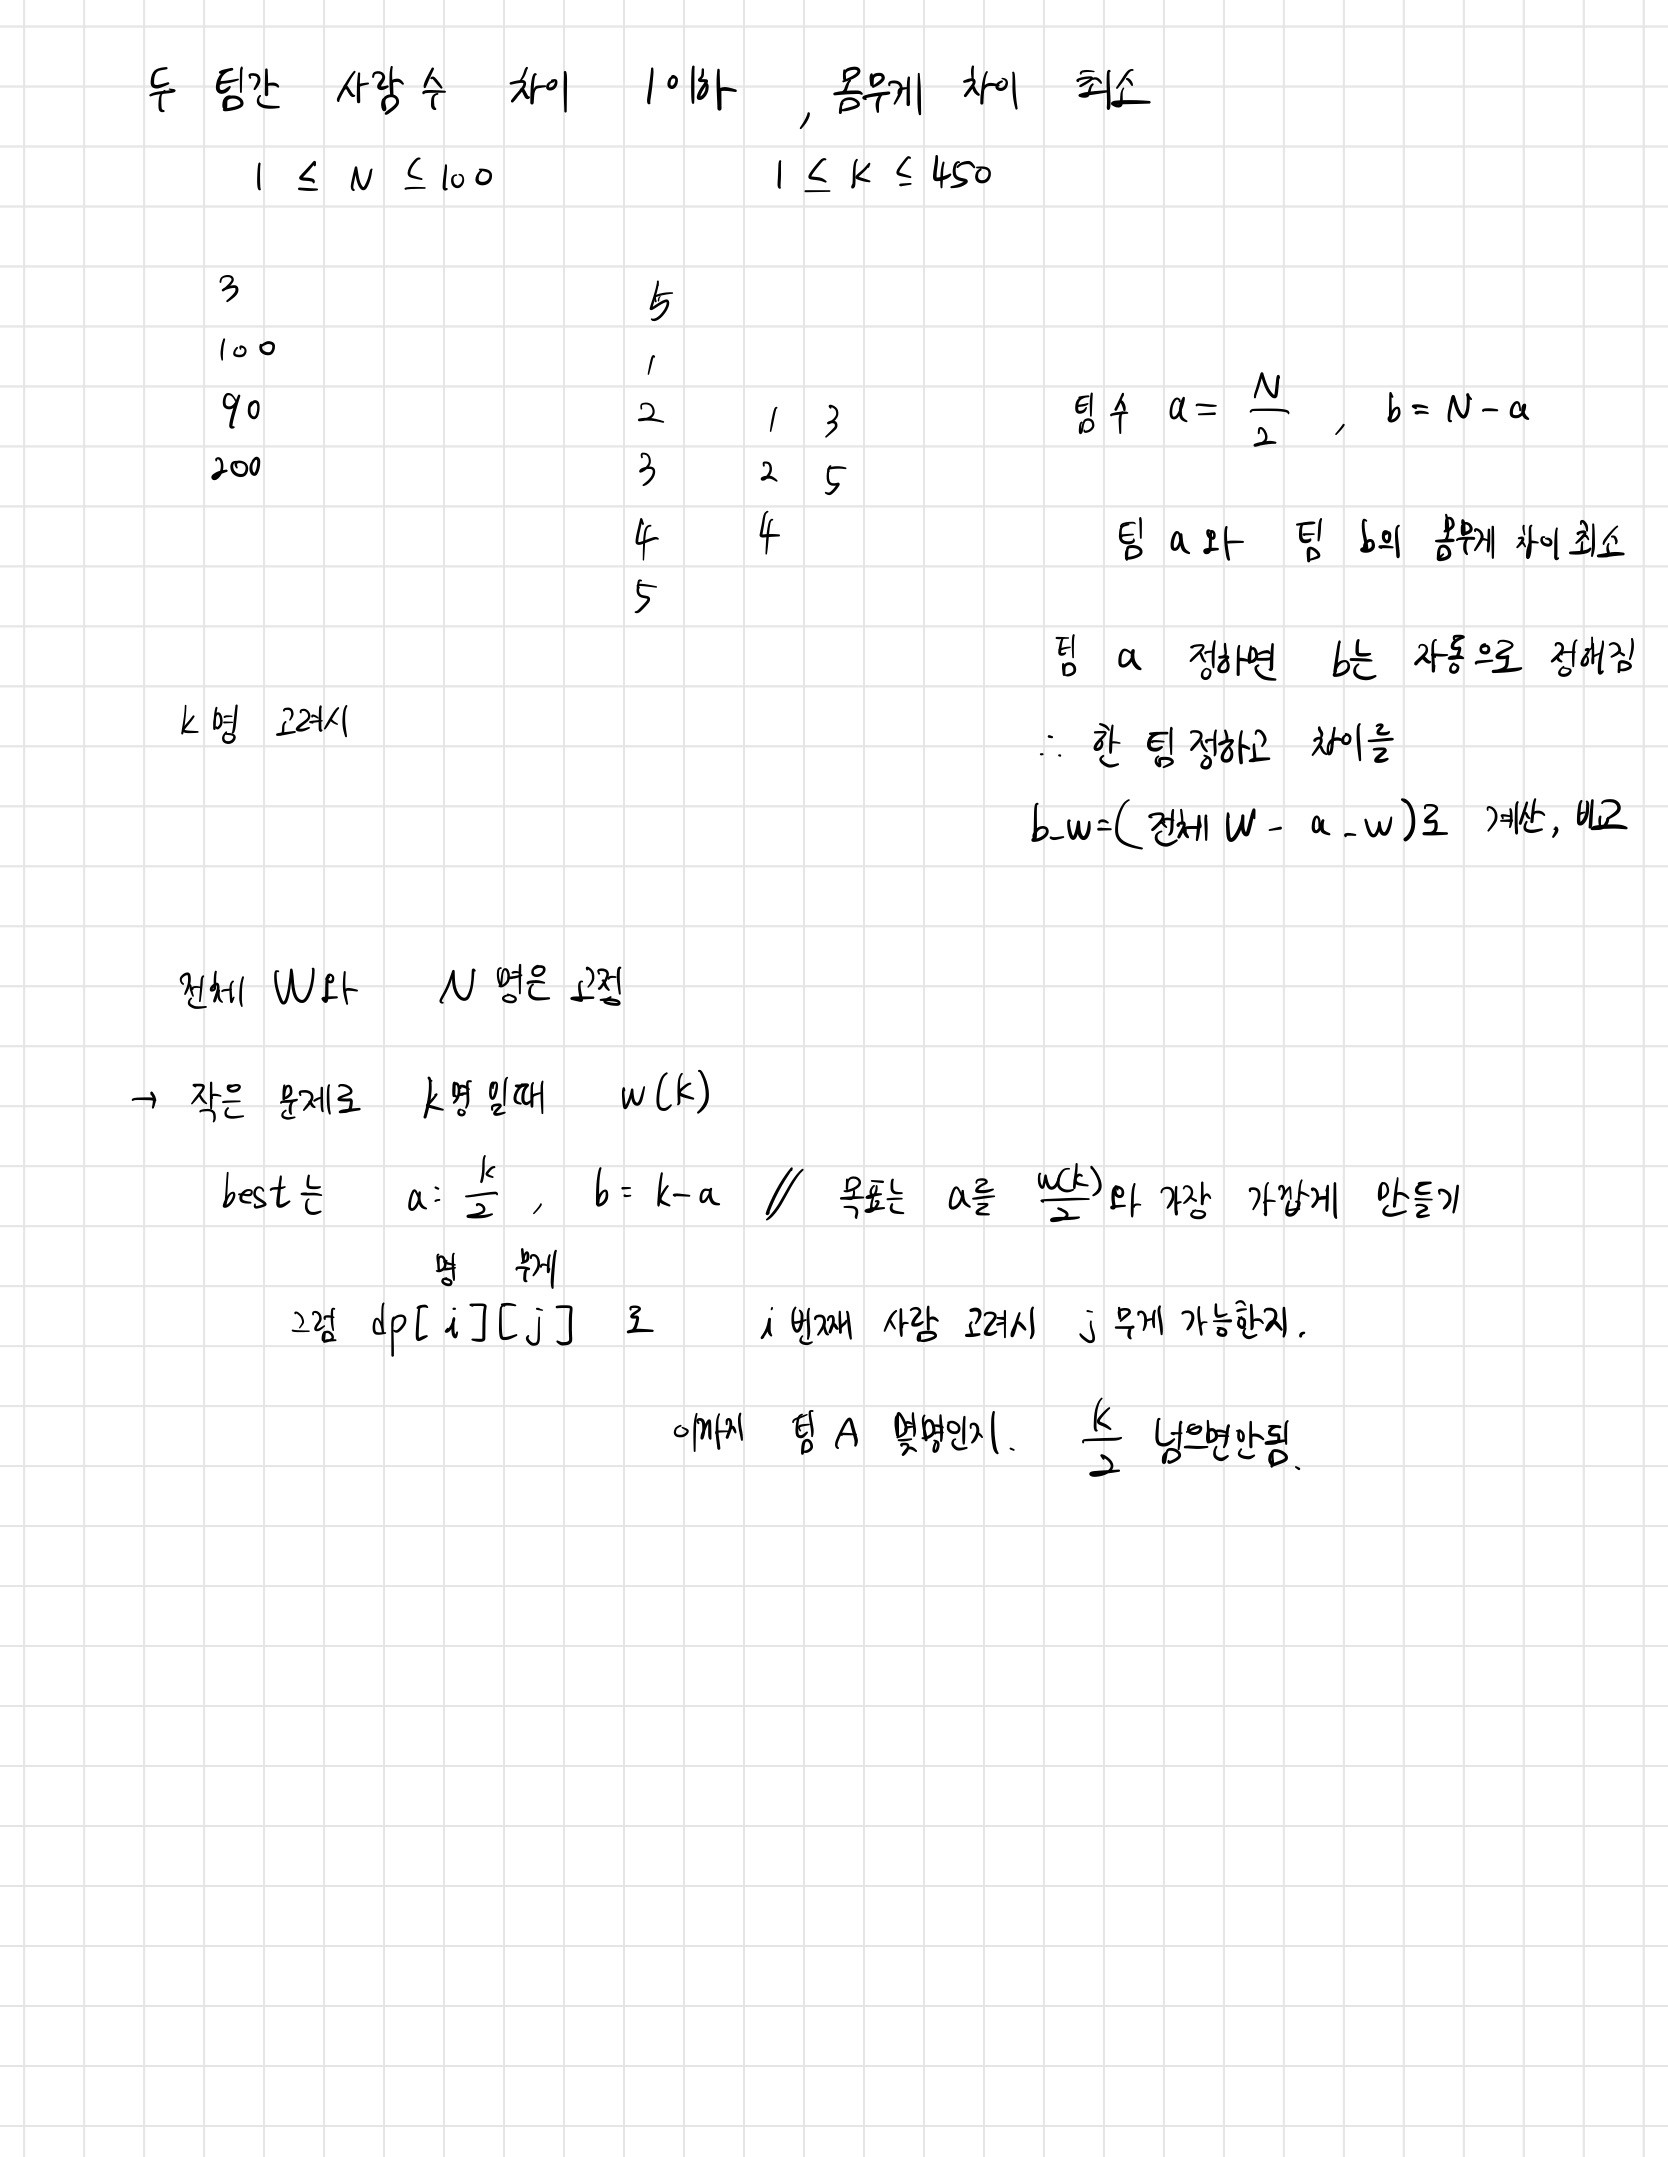 두 팀간 사람 수 차이 1이하 , 몸무게 차이 최소
1 ≤ N ≤ 100 1 ≤ K ≤ 450
3
100
90
200
5
1
2 1 3
3 2 5
4 4
5
팀 수 a = N/2 , b = N - a
팀 a 와 팀 b의 몸무게 차이 최소
팀 a 정하면 b는 자동으로 정해짐
∴ 한 팀 정하고 차이를
b_w = (전체 W - a_w)로 계산, 비교
k명 고려시
전체 W와 N명은 고정
→ 작은 문제로 k명일때 w(k)
best는 a = k/2 , b = k-a // 목표는 a를 w(k)/2 와 가장 가깝게 만들기
명 무게
그럼 dp[i][j] 로 i번째 사람 고려시 j 무게 가능한지.
이때까지 팀 A 몇명인지. k/2 넘으면안됨.